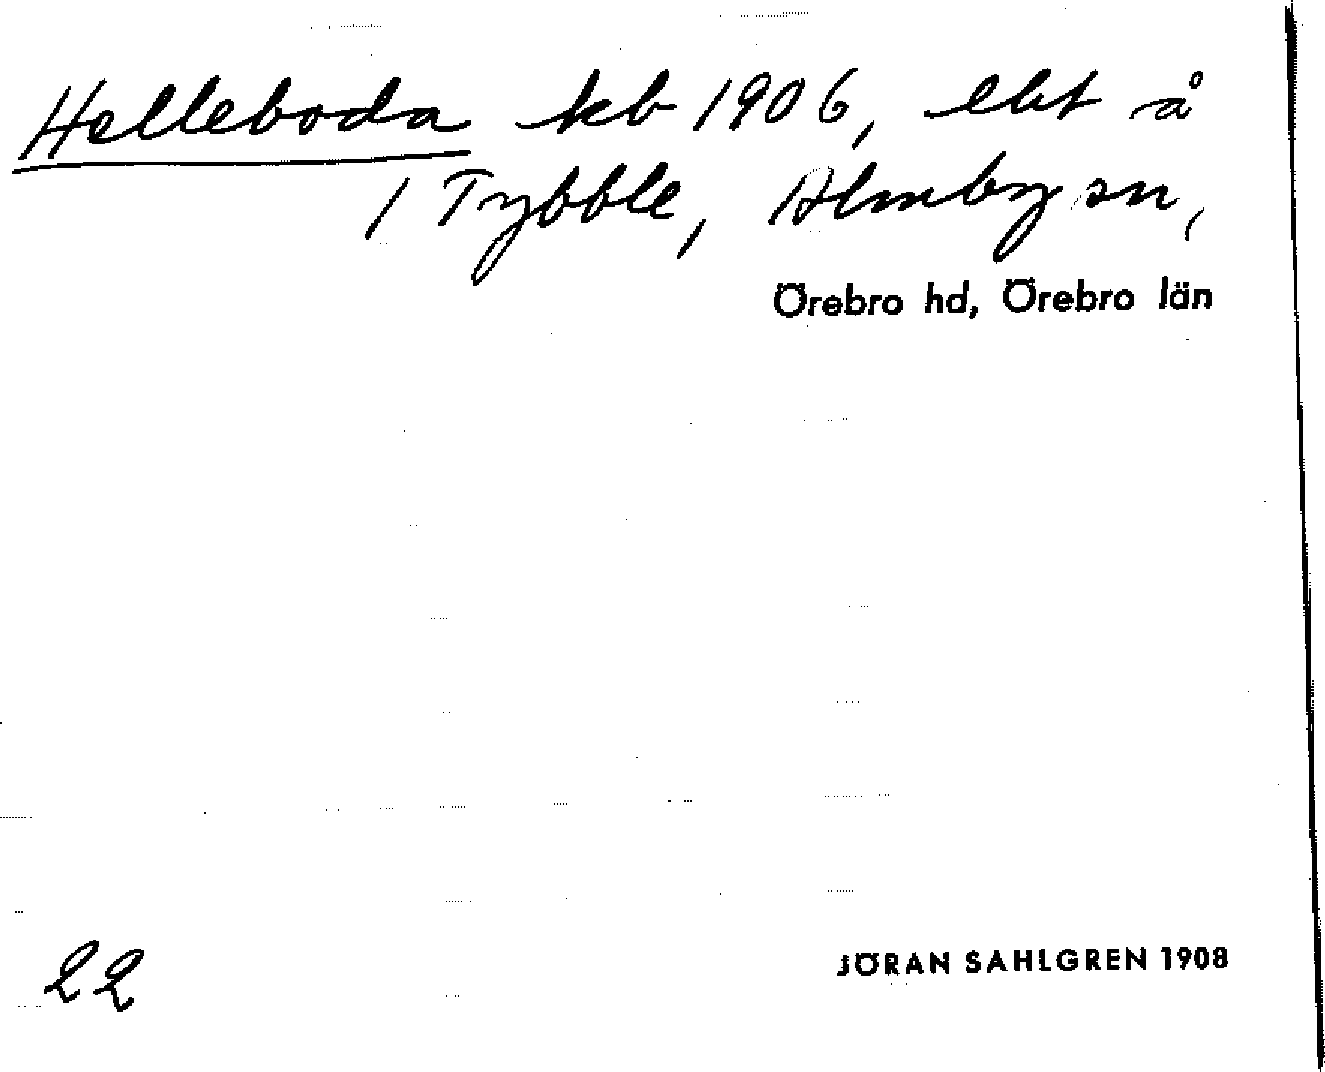 Helleboda kb 1906, lht å
1 Tybble, Almby sn,
Örebro hd, Örebro län
22
JÖRAN SAHLGREN 1908